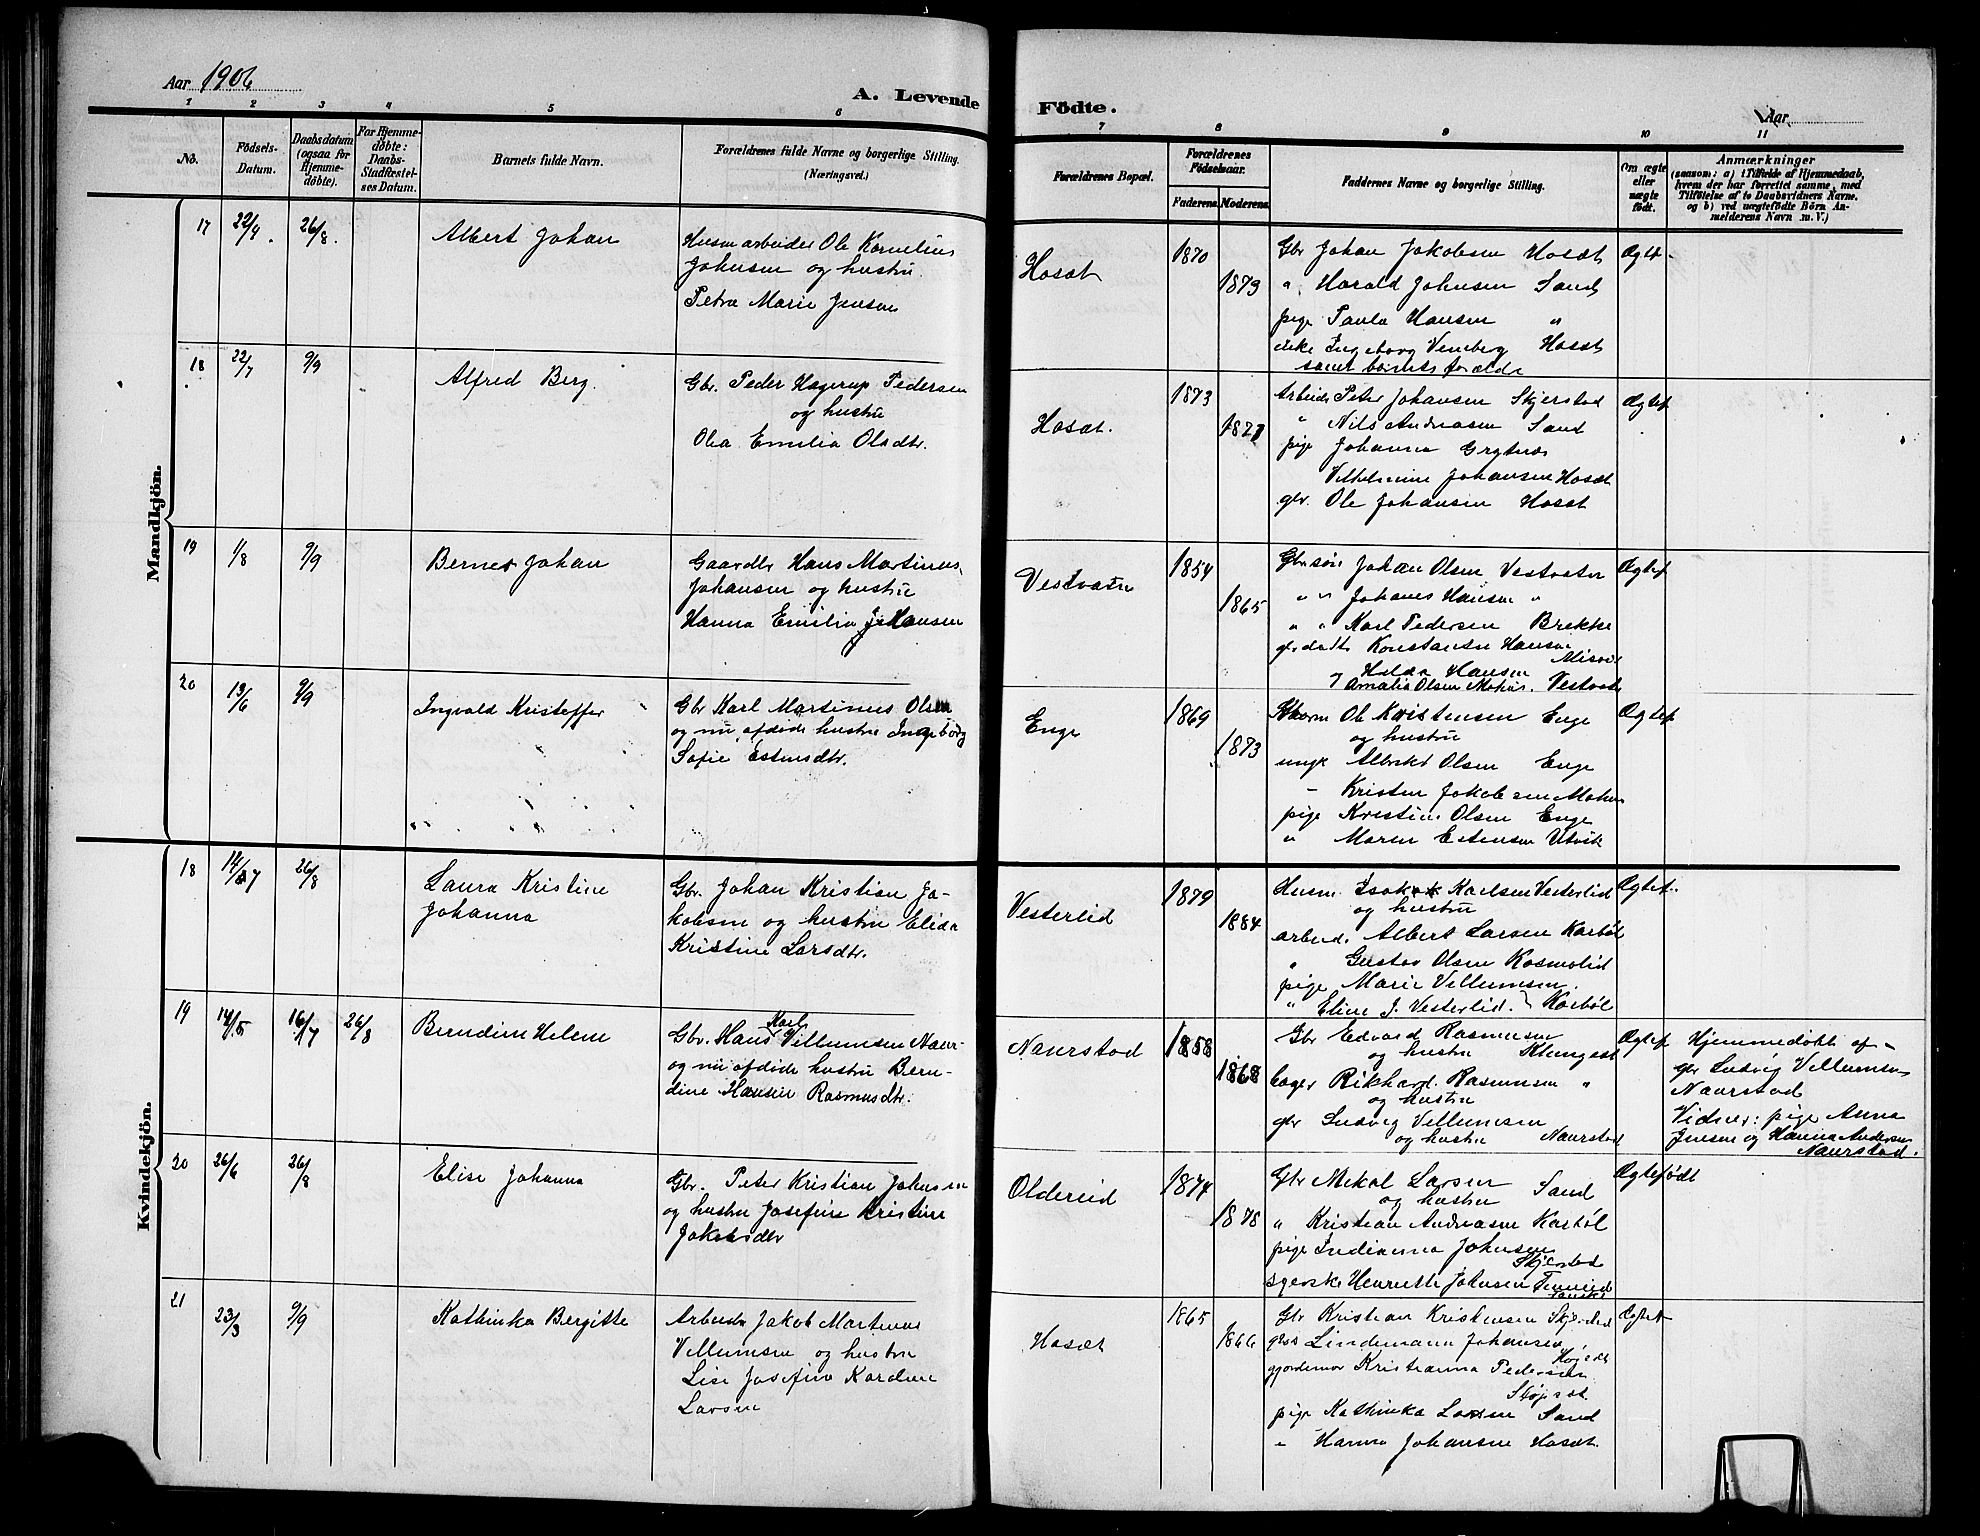 Aar 1906
A. Levende
Födte.
Aar
1 2 3 4 5 6
7 8 9 10 11
No.
Födsels-Datum.
Daabsdatum (ogsaa for Hjemmedöbte).
For Hjemmedöbte: Daabs-Stadfæstelses Datum.
Barnets fulde Navn.
Forældrenes fulde Navne og borgerlige Stilling.
(Næringsvei.)
Forældrenes Bopæl.
Forældrenes Födselsaar.
Faderens. Moderens.
Faddernes Navne og borgerlige Stilling.
Om ægte eller uægte födt.
Anmærkninger
(saasom: a) i Tilfælde af Hjemmedaab,
hvem der har forrettet samme, med
Tilföielse af to Daabsvidners Navne,
og b) ved uægtefödte Börn An-
melderens Navn m. V.)
Mandkjön.
17 29/4. 26/8.
Albert Johan
Husm arbeider Ole Kornelius
Johnsen og hustru
Petra Marie Jensen
Hosæt
1870
1879
Gbr Johan Jakobsen Hosæt
" Harald Johnsen Sand
pige Paula Hansen "
enke Ingeborg Venberg Hosæt
samt barnets forældr
Ægtef
18 22/7 9/9
Alfred Berg.
Gbr. Peder Hagerup Pedersen
og hustru
Olea Emilia Olsdtr.
Hosæt.
1873
1871
Arbeidr Peter Johansen Skjerstad
" Nils Andreasen Sand
pige Johanna Grytnes
Vilhelmine Johansen Hosæt
gbr. Ole Johansen Hosæt
Ægtef
19 1/8 9/9
Berner Johan
Gaardbr Hans Martinus
Johansen og hustru
Hanna Emilia Johansen
Vestvatn
1854
1865
Gbr søn Johan Olsen Vestvatn
" " Johanes Hansen "
" " Karl Pedersen Brekke
gbrdatt Konstanse Hansen
Misvær
Hulda Hansen
Amalia Olsen Mohus. Vestvatn
Ægtef
20 13/6 9/9
Ingvald Kristoffer
Gbr Karl Martinus Olsen
og nu afdøde hustru Ingeborg
Sofie Estensdtr.
Enge
1869
1873
Ole Kristensen Enge
og hustru
ungk Albrekt Olsen Enge
" Kristen Jakobsen Mohus
pige Kristine Olsen Enge
" Maren Estensen Utvik
Ægtef
Kvindekjön.
18 14/7 26/8
Laura Kristine
Johanna
Gbr. Johan Kristian Ja-
kobsen og hustru Elida
Kristine Larsdtr.
Vesterlid
1879
1884
Husm. Isak Karlsen Vesterlid
og hustru
arbeid. Albert Larsen Karbøl
" Gustav Olsen Kosmolid
pige Marie Villumsen
" Eline J. Vesterlid. } Karbøl
Ægtef.
19 14/5 16/7 26/8
Berndine Helene
Gbr. Hans Karl Villumsen Naur-
og nu afdøde hustru Bern-
dine Hansine Rasmusdtr.
Naurstad
1858
1868
Gbr Edvard Rasmussen
og hustru Klunget
bager Rikhard Rasmussen "
og hustru
gbr Ludvig Villumsen
og hustru Naurstad
Ægtef
Hjemmedøbt af
gbr Ludvig Villumsen
Naurstad
Vidner: pige Anna
Jensen og Hanna Andersen
Naurstad.
20 26/6 26/8
Elise Johanna
Gbr. Peter Kristian Johnsen
og hustru Josefine Kristine
Jakobsdtr
Oldereid
1874
1878
Gbr Mikal Larsen
og hustru Sand
" Kristian Andreasen Karbøl
pige Indianna Johnsen
Skjerstad
syerske Henriette Johnsen
Ægtefødt
21 23/3 9/9
Kathinka Bergitte
Arbeidr Jakob Martinus
Villumsen og hustru
Lise Josefine Kardine
Larsen
Hosæt
1865
1866
Gbr Kristian Kristensen Skjerstad
Lindemann Johansen
Hosæt
gjordemor Kristianna Pedersen
pige Kathinka Larsen Sand
" Hanna Johansen Hosæt.
Ægtef